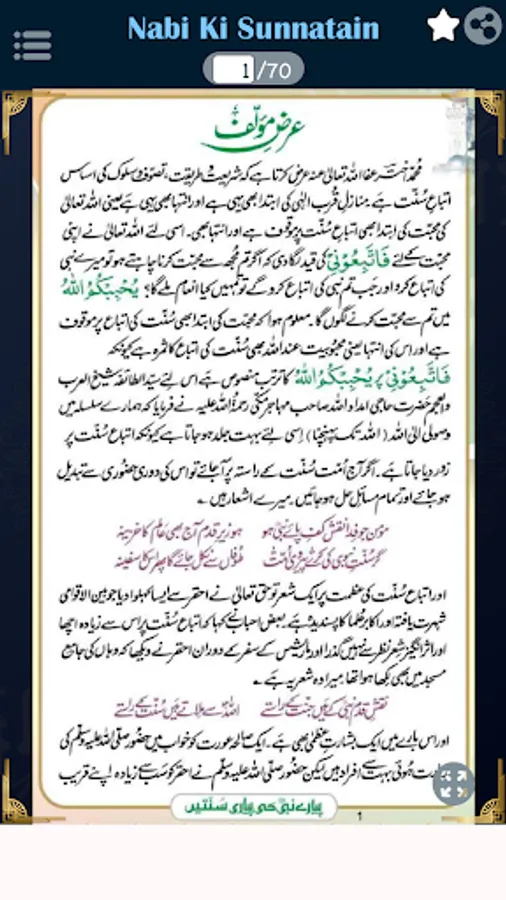 Nabi Ki Sunnatain
1/70
عرضِ مؤلف
محمد اختر عفا اللہ تعالیٰ عنہ عرض کرتا ہے کہ شریعت و طریقت، تصوف و سلوک کی اساس
اتباعِ سُنّت ہے۔ منازلِ قُربِ الٰہی کی ابتدا بھی یہی ہے اور انتہا بھی یہی ہے یعنی اللہ تعالیٰ
کی محبّت کی ابتدا بھی اتباعِ سُنّت پر موقوف ہے اور انتہا بھی۔ اسی لئے اللہ تعالیٰ نے اپنی
محبّت کے لئے فَاتَّبِعُوْنِیْ کی قید لگا دی کہ اگر تم مُجھ سے محبّت کرنا چاہتے ہو تو میرے نبی
کی اتباع کرو اور جب تم نبی کی اتباع کرو گے تو تمہیں کیا انعام ملے گا؟ یُحْبِبْکُمُ اللّٰہُ
میں تم سے محبّت کرنے لگوں گا۔ معلوم ہوا کہ محبّت کی ابتدا بھی سُنّت کی اتباع پر موقوف
ہے اور اس کی انتہا یعنی محبوبیت عند اللہ بھی سُنّت کی اتباع کا ثمرہ ہے کیونکہ
فَاتَّبِعُوْنِیْ پر یُحْبِبْکُمُ اللّٰہُ کا ترتب منصوص ہے اس لئے سیّد الطائفہ شیخ العرب
والعجم حضرت حاجی امداد اللہ صاحب مہاجر مکّی رحمۃ اللہ علیہ نے فرمایا کہ ہمارے سلسلہ میں
وصول الی اللہ (اللہ تک پہنچنا) اسی لئے بہت جلد ہو جاتا ہے کیونکہ اتباعِ سُنّت پر
زور دیا جاتا ہے۔ اگر آج اُمّت سُنّت کے راستہ پر آ جائے تو اس کی دوری حضوری سے تبدیل
ہو جائے اور تمام مسائل حل ہو جائیں۔ میرے اشعار ہیں۔
مؤمن جو فدا نقشِ کفِ پائے نبیؐ ہو ہو زیرِ قدم آج بھی عالم کا خزینہ
گر سُنّتِ نبویؐ کی کرے پیروی اُمّت طوفاں سے نکل جائے گا پھر اس کا سفینہ
اور اتباعِ سُنّت کی عظمت پر ایک شعر تو حق تعالیٰ نے احقر سے ایسا کہلوا دیا جو بین الاقوامی
شہرت یافتہ اور اکابر علما کا پسندیدہ ہے۔ بعض احباب نے کہا کہ اتباعِ سُنّت پر اس سے زیادہ اچھا
اور اثر انگیز شعر نظر سے نہیں گذرا اور ماریشس کے سفر کے دوران احقر نے دیکھا کہ وہاں کی جامع
مسجد میں بھی لکھا ہوا تھا، میرا وہ شعر یہ ہے۔
نقشِ قدم نبیؐ کے ہیں جنّت کے راستے اللہ سے ملاتے ہیں سُنّت کے راستے
اور اس بارے میں ایک بشارتِ عظمیٰ بھی ہے۔ ایک صالحہ عورت کو خواب میں حضور صلی اللہ علیہ وسلم کی
ہوئی بہت سے افراد ہیں لیکن حضور صلی اللہ علیہ وسلم نے احقر کو سب سے زیادہ اپنے قریب
پیارے نبیؐ کی پیاری سنتیں
1